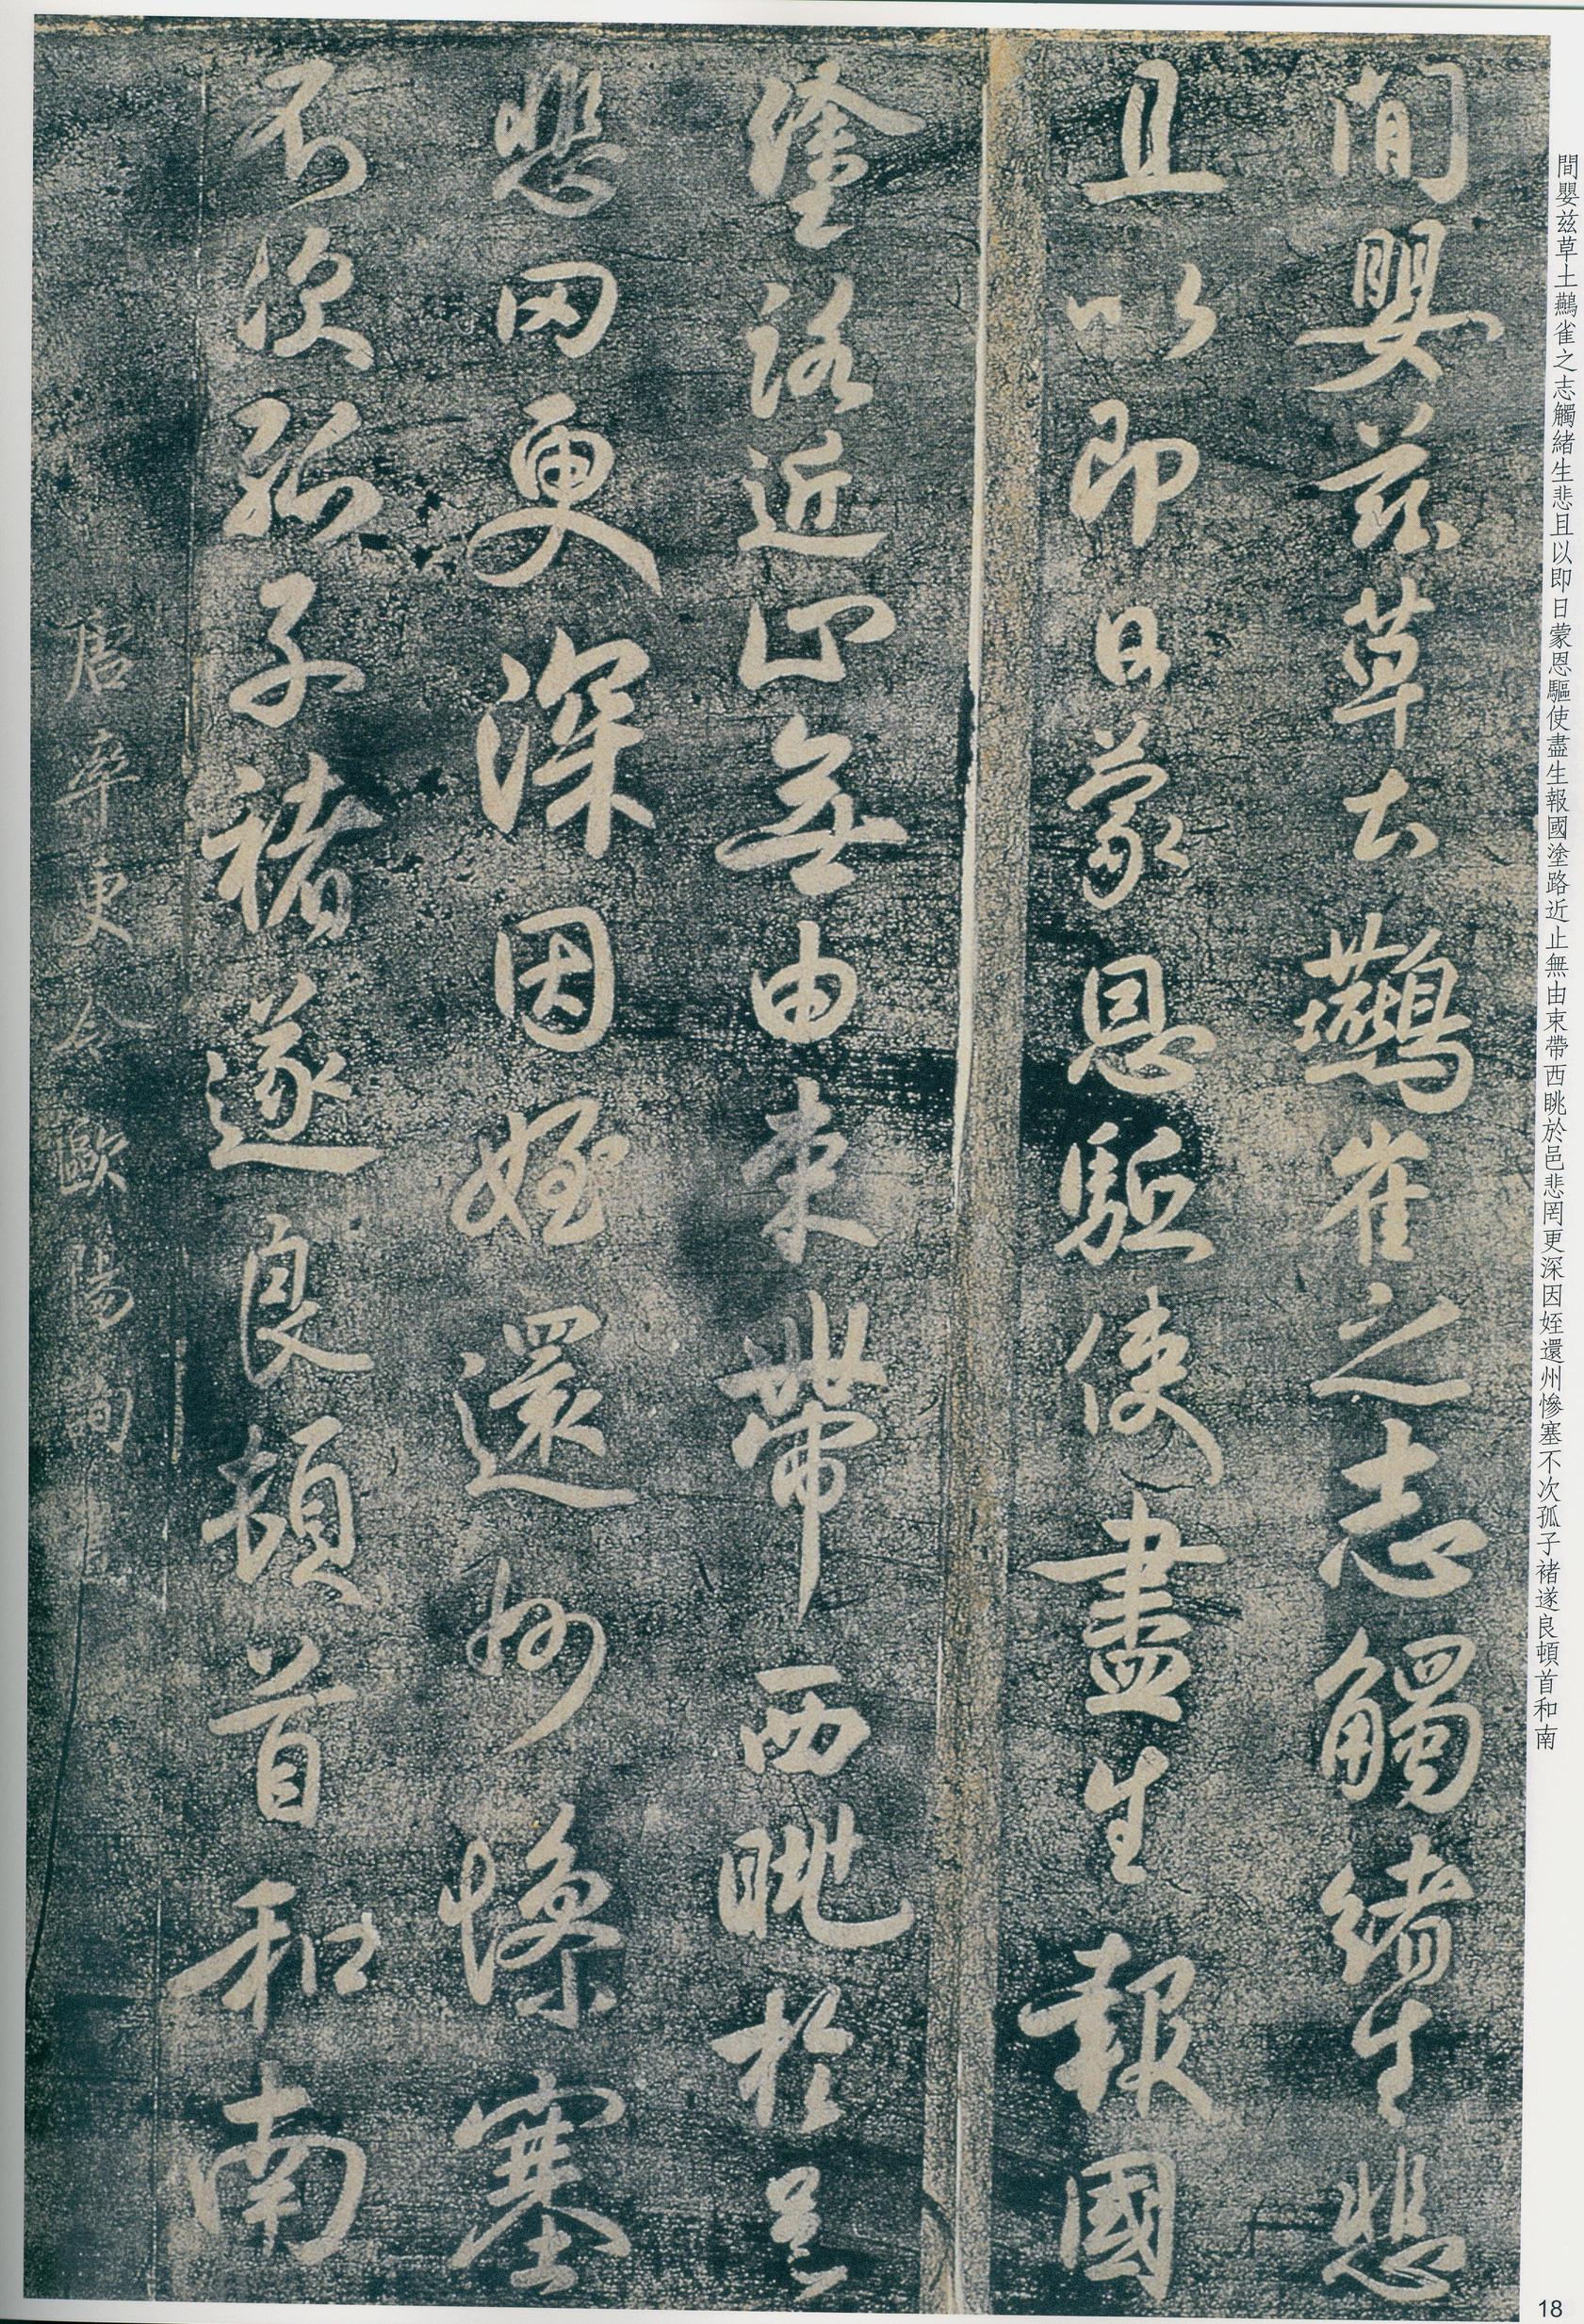 間嬰茲草土鷰雀之志觸緒生悲且以即日蒙恩驅使盡生報國塗路近止無由束帶西眺於邑悲罔更深因姪還州慘塞不次孤子褚遂良頓首和南
間嬰茲草土鷰雀之志觸緒生悲
且以即日蒙恩驅使盡生報國
塗路近止無由束帶西眺於邑
悲罔更深因姪還州慘塞
不次孤子褚遂良頓首和南
唐率更令歐陽詢書
18